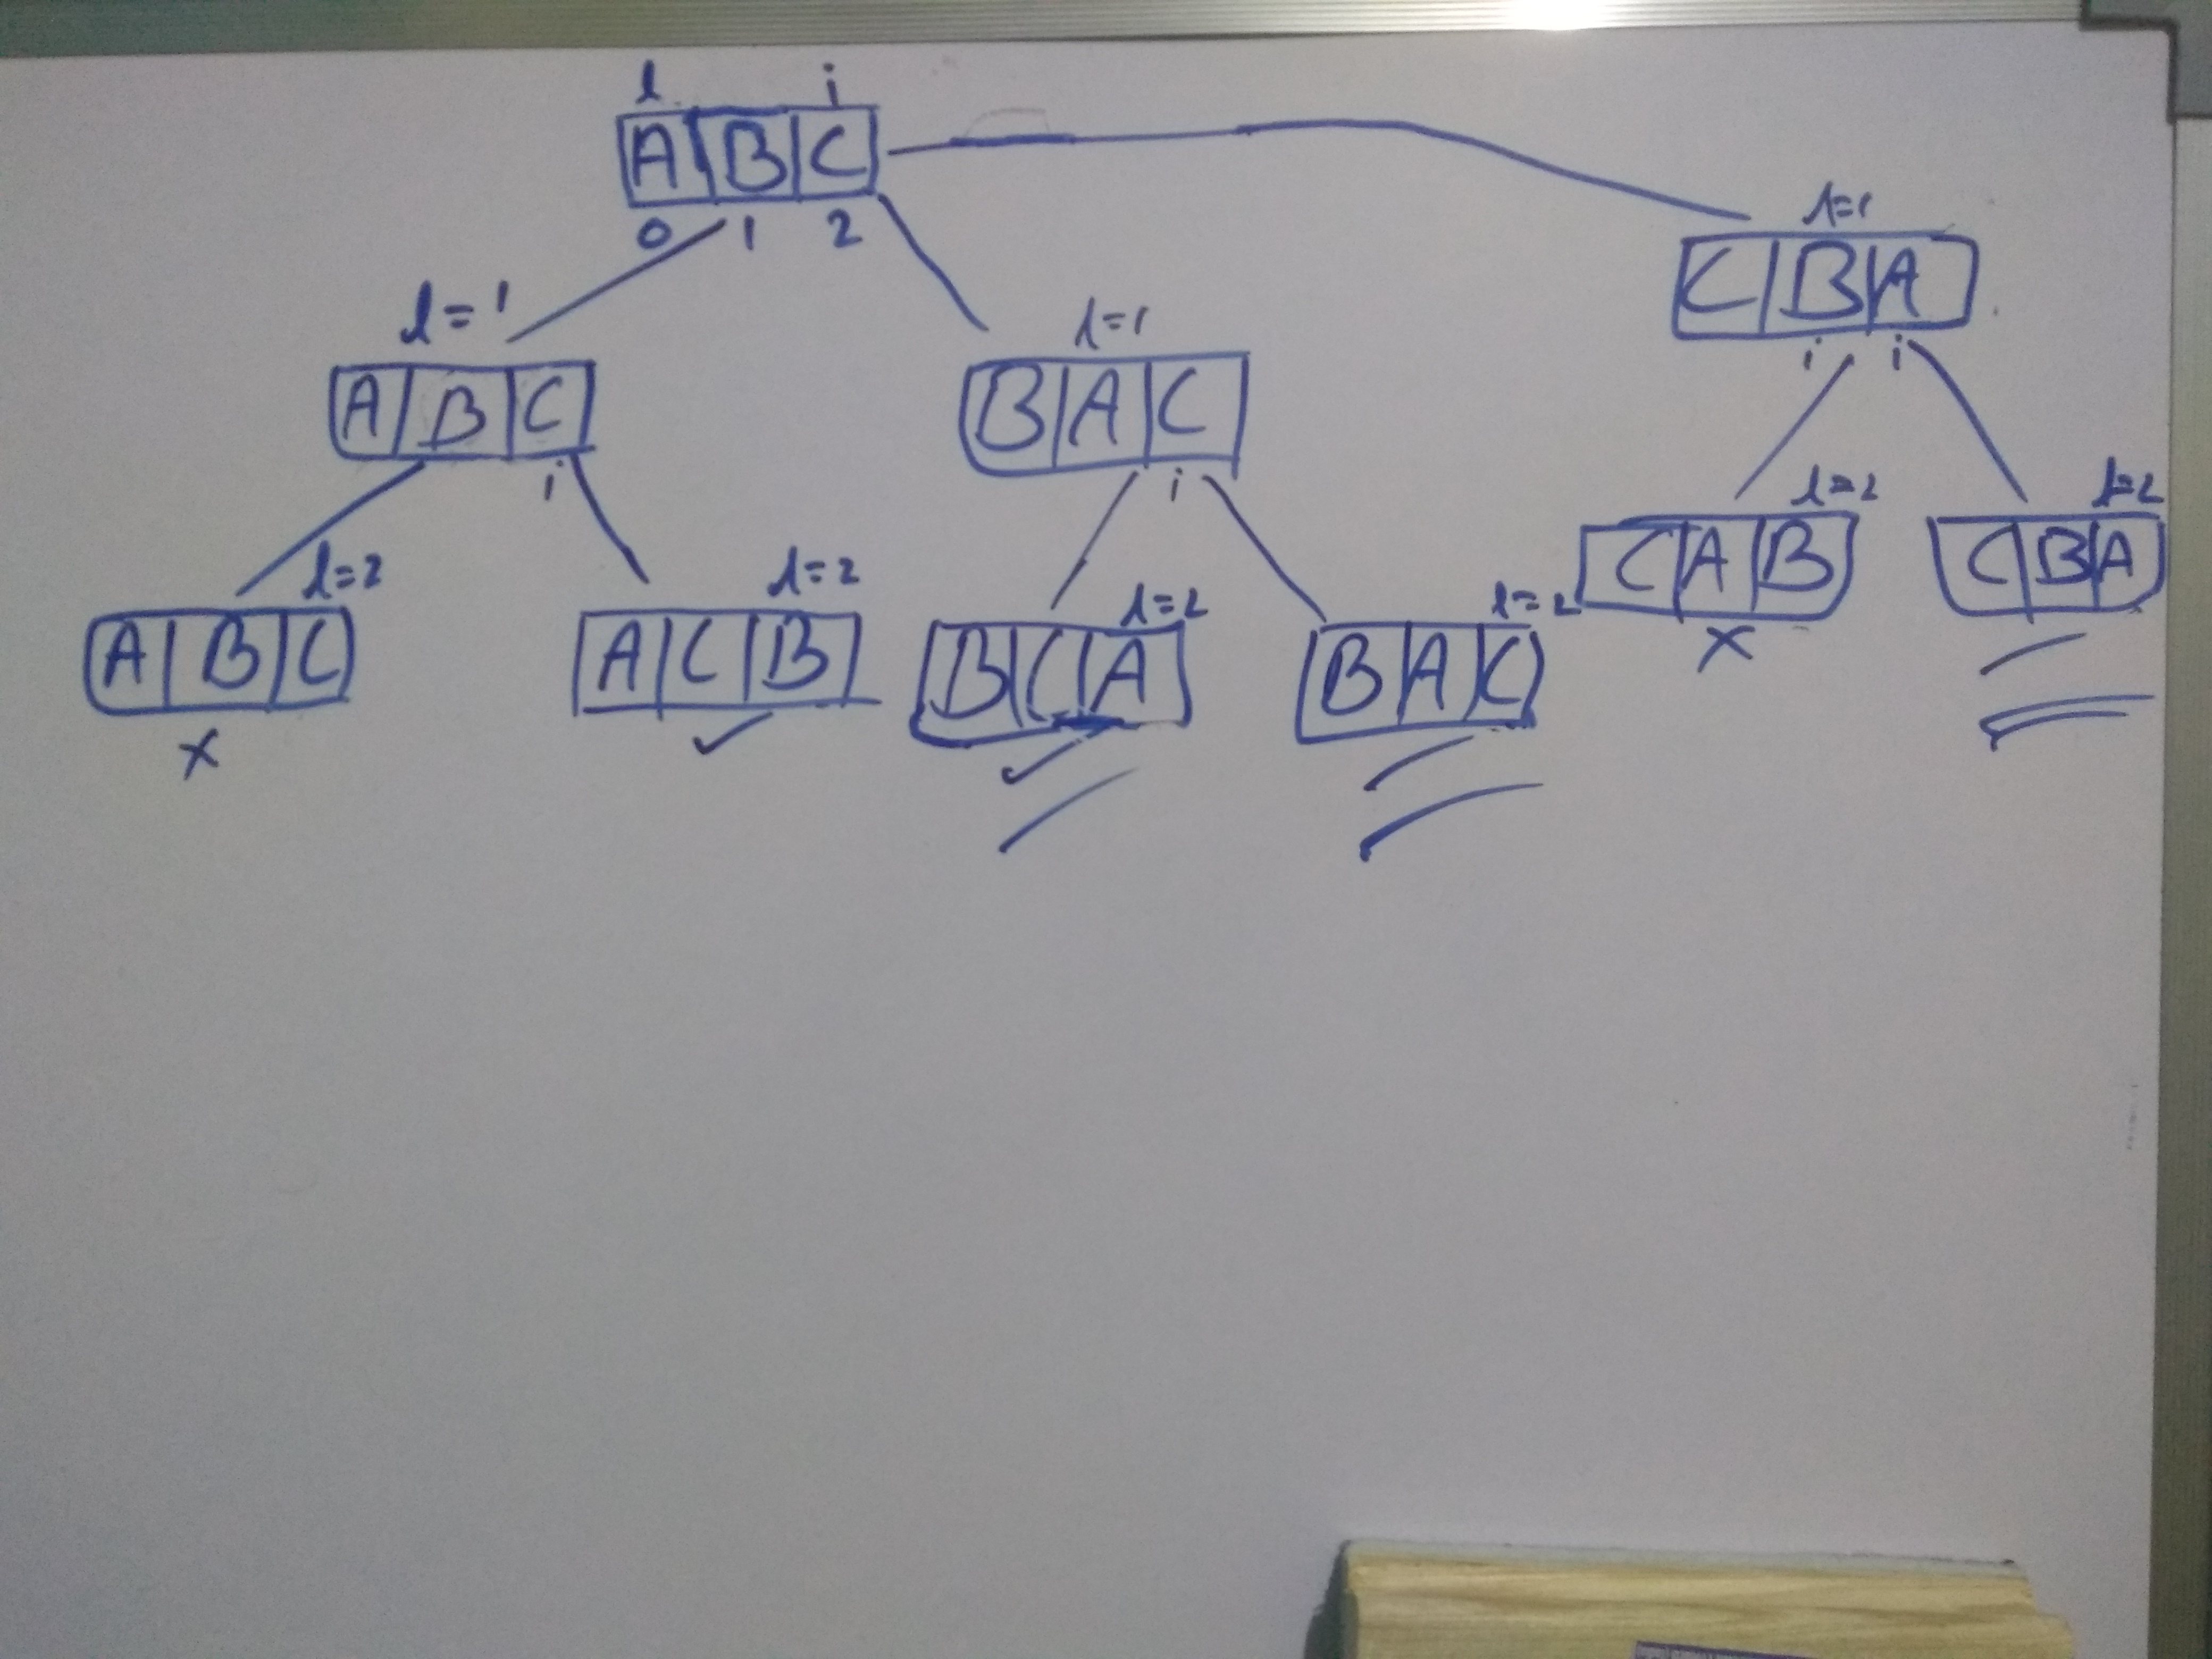 l i
A B C
0 1 2
l=1
C B A
i i
l=1
A B C
i
l=1
B A C
i
l=2
A B C
x
l=2
A C B
✓
l=2
B C A
✓
l=2
B A C
l=2
C A B
x
l=2
C B A